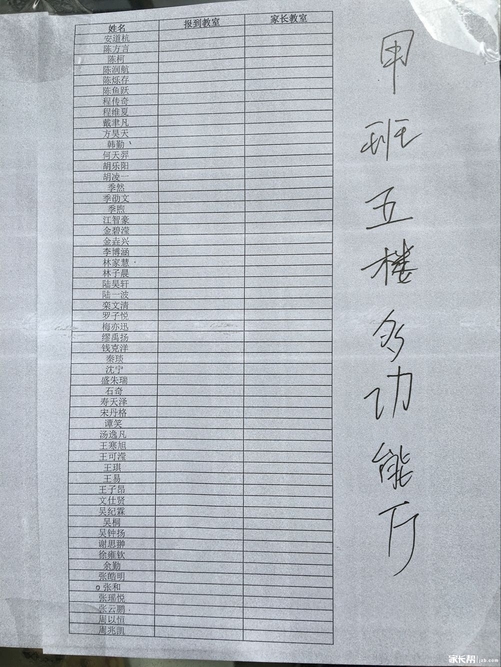 姓名 报到教室 家长教室
安道杭
陈方言
陈柯
陈润航
陈烁存
陈鱼跃
程传奇
程维夏
戴聿凡
方昊天
韩勤
何天羿
胡乐阳
胡凌一
季然
季劭文
季煦
江智豪
金碧滢
金垚兴
李博涵
林家慧
林子晨
陆昊轩
陆一波
栾文清
罗子悦
梅亦迅
缪禹扬
钱克洋
秦琰
沈宁
盛朱瑞
石奇
寿天泽
宋丹格
谭笑
汤逸凡
王寒旭
王可滢
王琪
王易
王子昂
文仕贤
吴纪霖
吴桐
吴钟扬
谢思翀
徐雍钦
余勤
张皓明
张和
张瑶悦
张云鹏
周以恒
周兆凯
甲班五楼多功能厅
家长帮 jzb.com